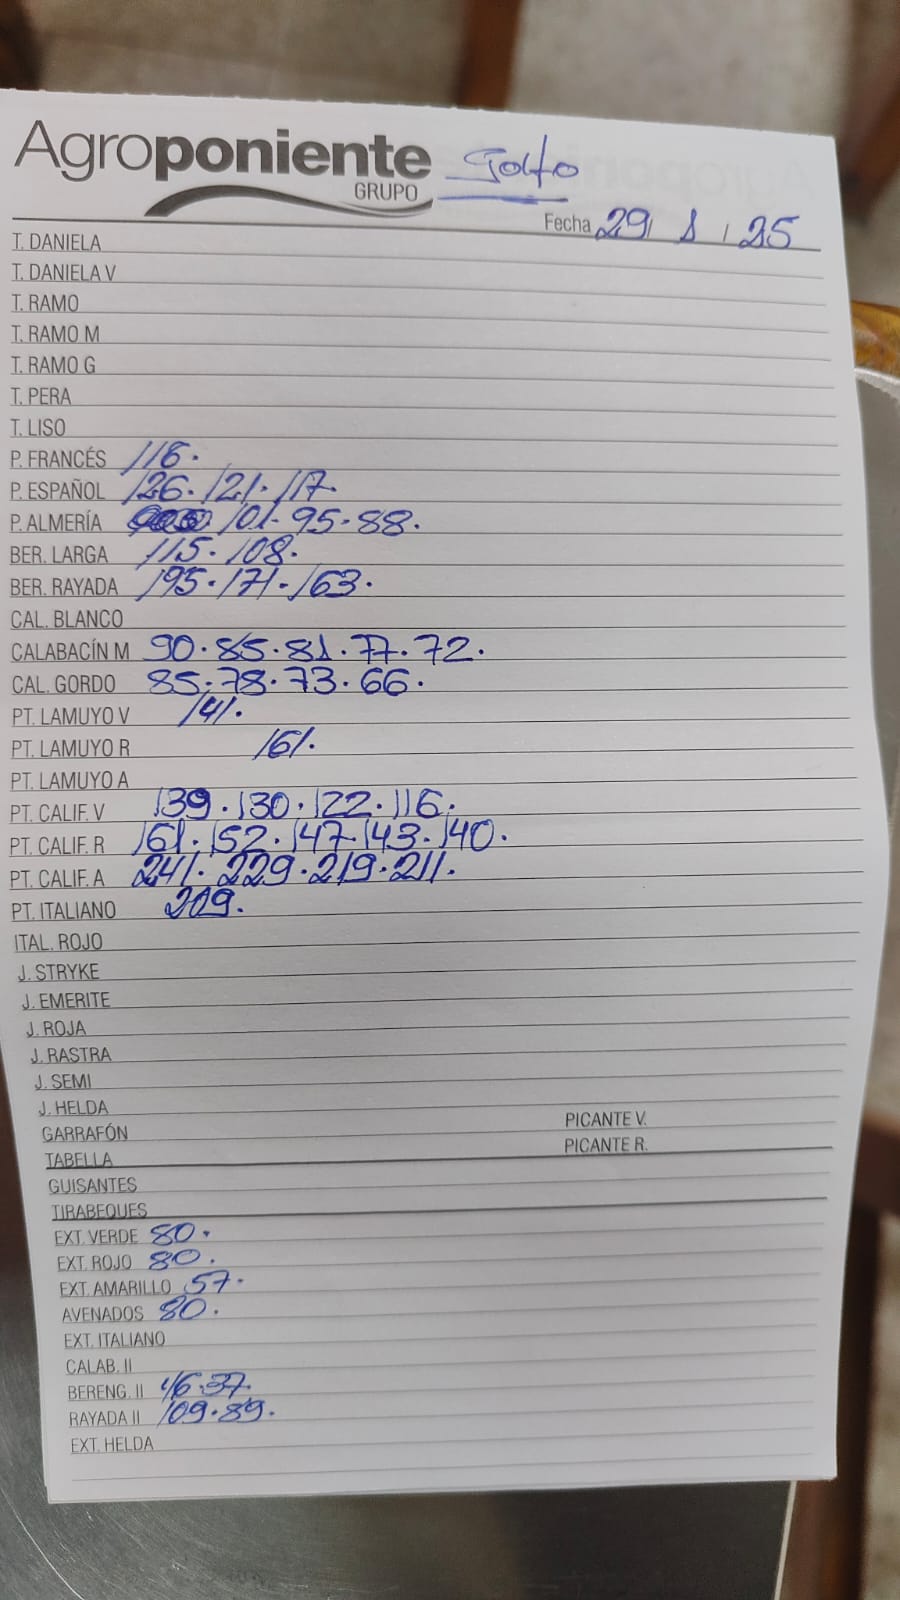 Agroponiente Golfo
GRUPO
Fecha 29/ 1 / 25
T. DANIELA
T. DANIELA V
T. RAMO
T. RAMO M
T. RAMO G
T. PERA
T. LISO
P. FRANCÉS 116.
P. ESPAÑOL 126. 121. 117.
P. ALMERÍA 101. 95. 88.
BER. LARGA 115. 108.
BER. RAYADA 195. 171. 163.
CAL. BLANCO
CALABACÍN M 90. 85. 81. 77. 72.
CAL. GORDO 85. 78. 73. 66.
PT. LAMUYO V 141.
PT. LAMUYO R 161.
PT. LAMUYO A
PT. CALIF. V 139. 130. 122. 116.
PT. CALIF. R 161. 152. 147. 143. 140.
PT. CALIF. A 241. 229. 219. 211.
PT. ITALIANO 209.
ITAL. ROJO
J. STRYKE
J. EMERITE
J. ROJA
J. RASTRA
J. SEMI
J. HELDA
GARRAFÓN PICANTE V.
TABELLA PICANTE R.
GUISANTES
TIRABEQUES
EXT. VERDE 80.
EXT. ROJO 80.
EXT. AMARILLO 57.
AVENADOS 80.
EXT. ITALIANO
CALAB. II
BERENG. II 46. 37.
RAYADA II 109. 89.
EXT. HELDA